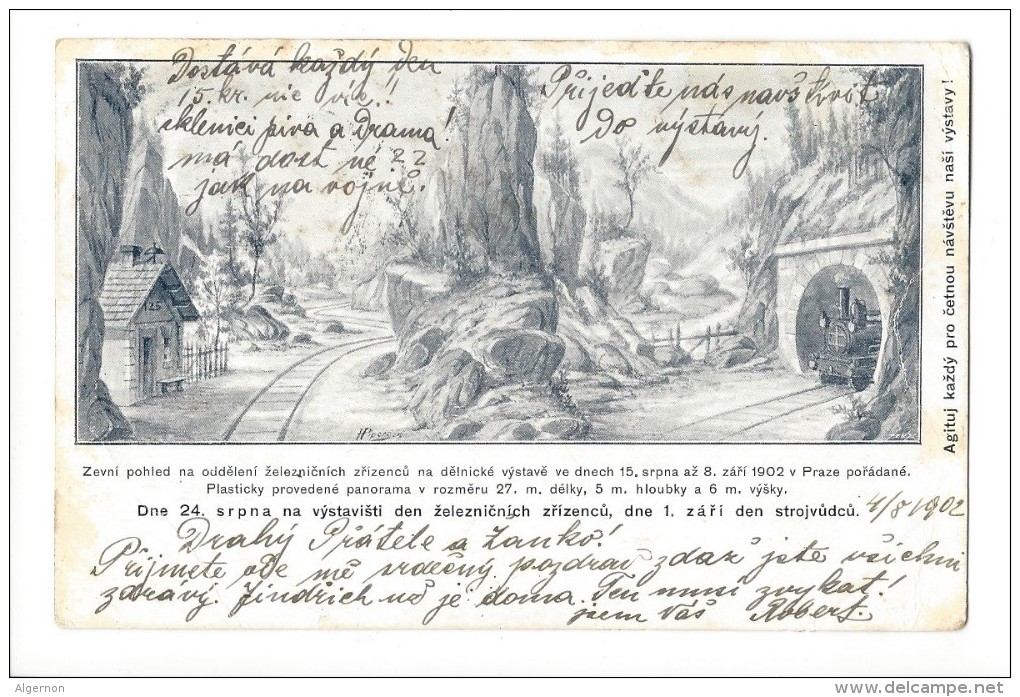 Dostává každý den
15. kr. nic víc!!
sklenici piva a Drama!
má dost né ??
jak na vojně.
Přijeďte nás navštívit
do výstavy.
Agituj každý pro četnou návštěvu naší výstavy!
125
Zevní pohled na oddělení železničních zřízenců na dělnické výstavě ve dnech 15. srpna až 8. září 1902 v Praze pořádané.
Plasticky provedené panorama v rozměru 27. m. délky, 5 m. hloubky a 6 m. výšky.
Dne 24. srpna na výstavišti den železničních zřízenců, dne 1. září den strojvůdců.
4/8 1902
Drahý Přátele a
Přijmete ode mě srdečný pozdrav zdaž jste všichni
zdravý. Jindřich už je doma. Ten musí zvykat!
jsem Váš Robert.
Algernon
delcampe.net